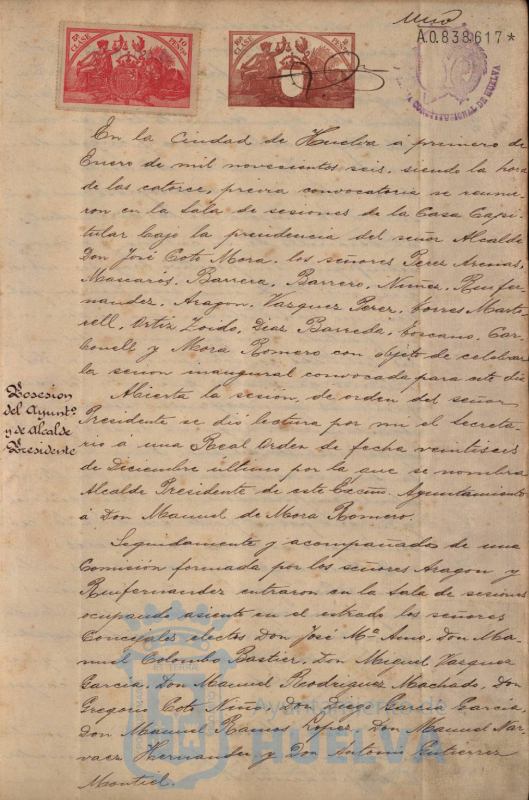 Uno
A.0.838,617*
5ª CLASE
10 PESETAS
CONSTITUCIONAL DE HUELVA
En la Ciudad de Huelva á primero de
Enero de mil novecientos seis, siendo la hora
de las catorce, previa convocatoria se reunie-
ron en la Sala de sesiones de la Casa Capi-
tular bajo la presidencia del señor Alcalde
Don José Coto Mora, los señores Perez Arenas,
Mascarós, Barrera, Barrero, Nuñez, Ruifer-
nandez, Aragon, Vazquez Perez, Torres Marto-
rell, Ortiz Zoido, Diaz Barreda, Toscano, Car-
bonell y Mora Romero con objeto de celebrar
la sesion inaugural convocada para este dia
Posesion
del Ayuntº
y de Alcalde
Presidente
Abierta la sesión, de orden del señor
Presidente se dió lectura por mi el secreta-
rio á una Real Orden de fecha veintiseis
de Diciembre último por la que se nombra
Alcalde Presidente de este Excmo. Ayuntamiento
á Don Manuel de Mora Romero.
Seguidamente y acompañados de una
Comisión formada por los señores Aragon y
Ruifernandez entraron en la Sala de sesiones
ocupando asiento en el estrado los señores
Concejales electos Don José Mª Amo, Don Ma-
nuel Colombo Bastier, Don Miguel Vazquez
Garcia, Don Manuel Rodriguez Machado, Don
Gregorio Coto Niño, Don Diego Garcia Garcia,
Don Manuel Ramos Lopez, Don Manuel Nar-
vaez Hernandez y Don Antonio Gutierrez
Montiel.
Ayuntamiento de
HUELVA